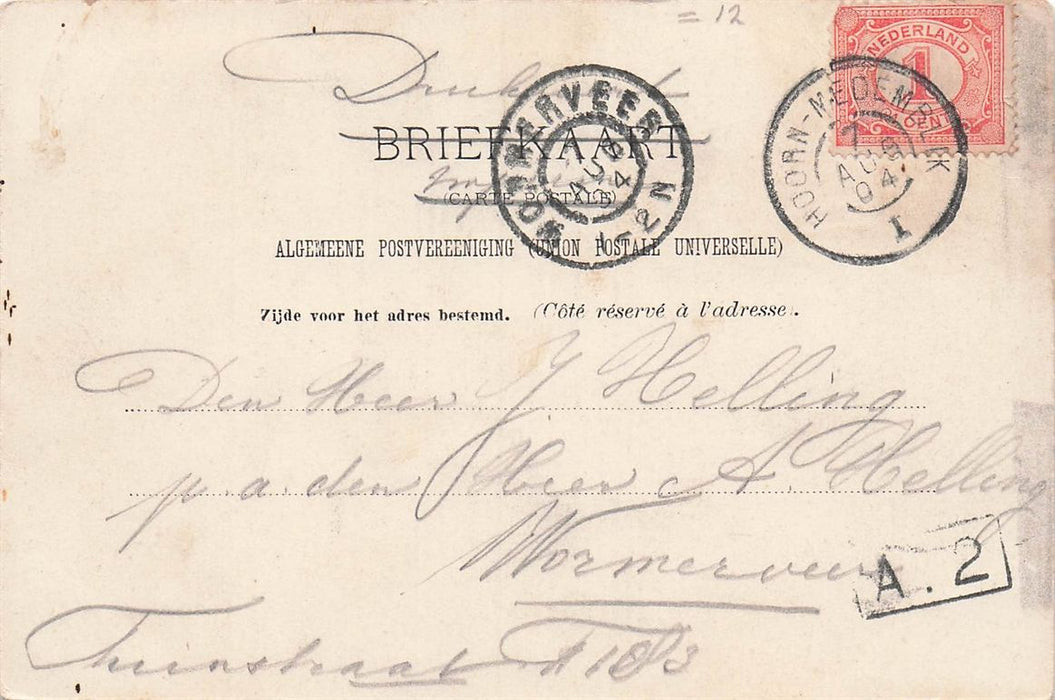 = 12
NEDERLAND
1
CEN
HOORN-MEDEMBLIK
7 AUG 04
I
Drukwerk
BRIEFKAART
WORMERVEER
7 AUG 04
1-2N
(CARTE POSTALE)
ALGEMEENE POSTVEREENIGING (UNION POSTALE UNIVERSELLE)
Zijde voor het adres bestemd. (Côté réservé à l'adresse).
Den Heer J Helling
p.a. den Heer A. Helling
Wormerveer
A. 2
Tuinstraat A 183